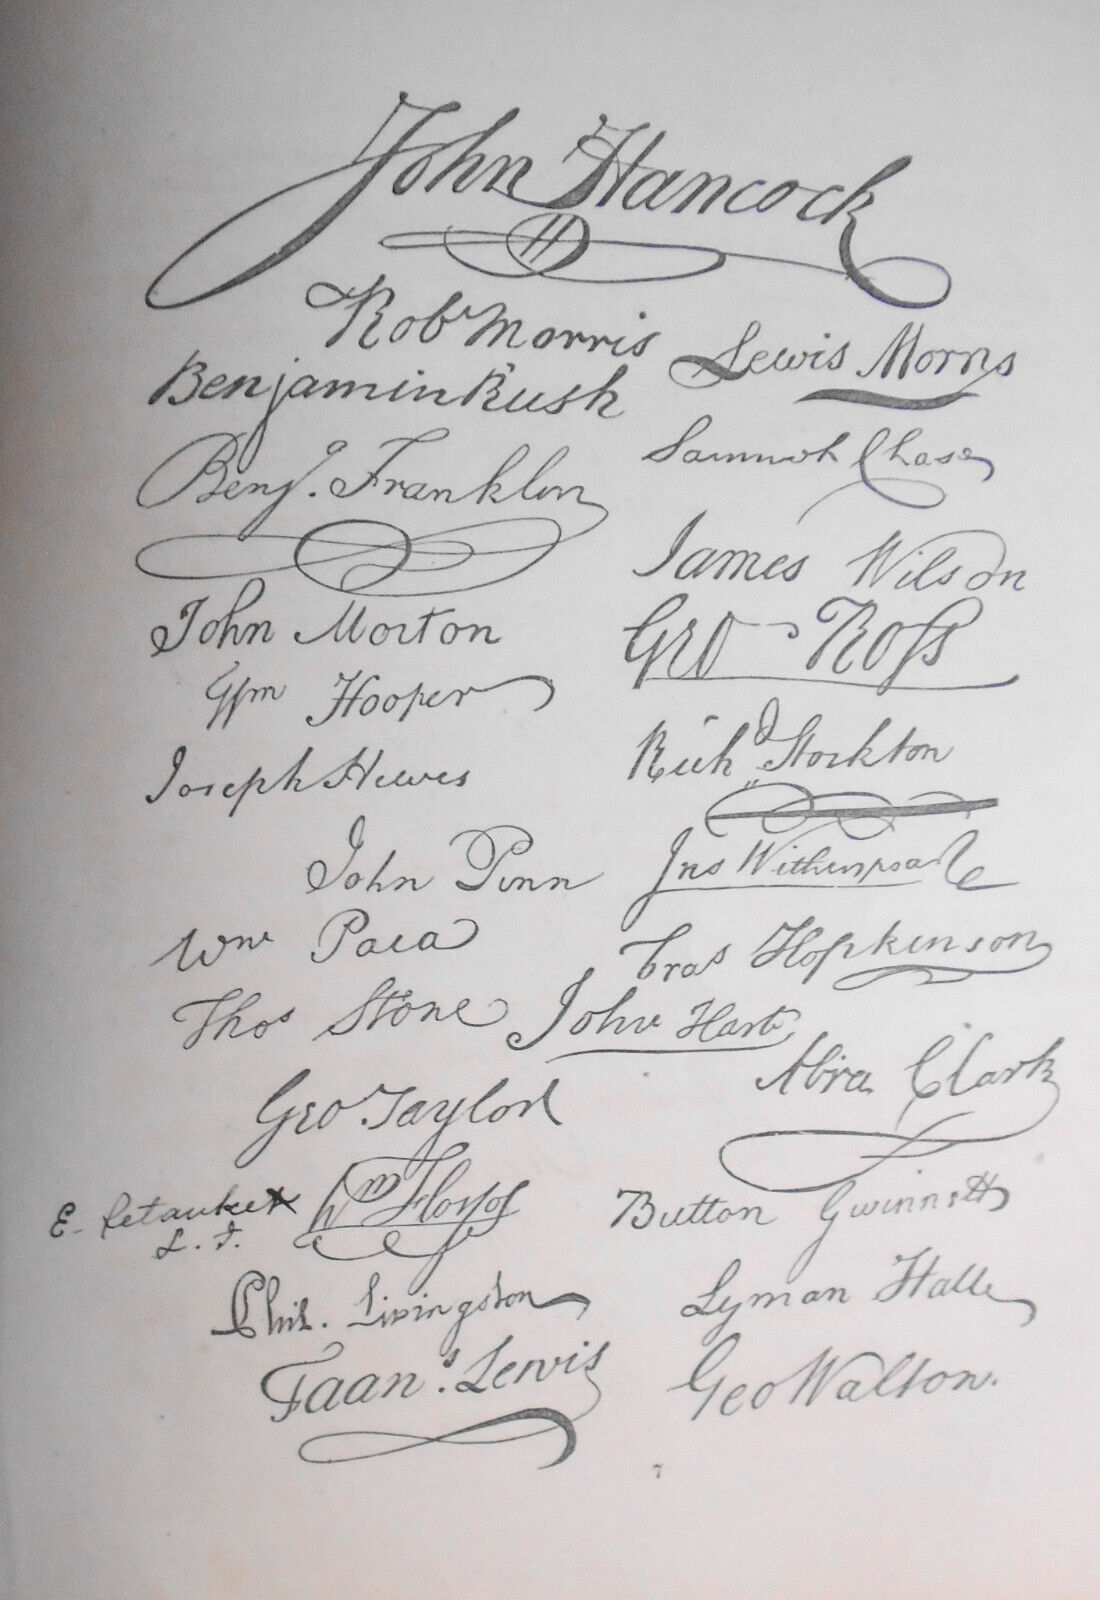 John Hancock
H
Robt Morris
Lewis Morris
Benjamin Rush
Benj. Franklin
Samuel Chase
John Morton
James Wilson
Geo Ross
Wm Hooper
Joseph Hewes
Richd Stockton
John Penn
Jno Witherspoon
Wm Paca
Fras Hopkinson
Thos Stone
John Hart
Geo Taylor
Abra Clark
E. Setauket
L. I.
Wm Floyd
Button Gwinnett
Phil. Livingston
Lyman Hall
Frans. Lewis
Geo Walton.
7